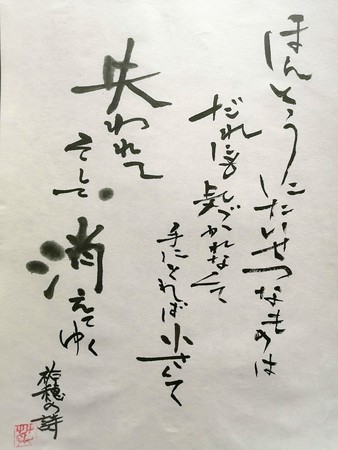 ほんとうに
たいせつなものは
だれにも
気づかれなくて
手にとれば小さくて
失われて
そして
消えてゆく
の詩